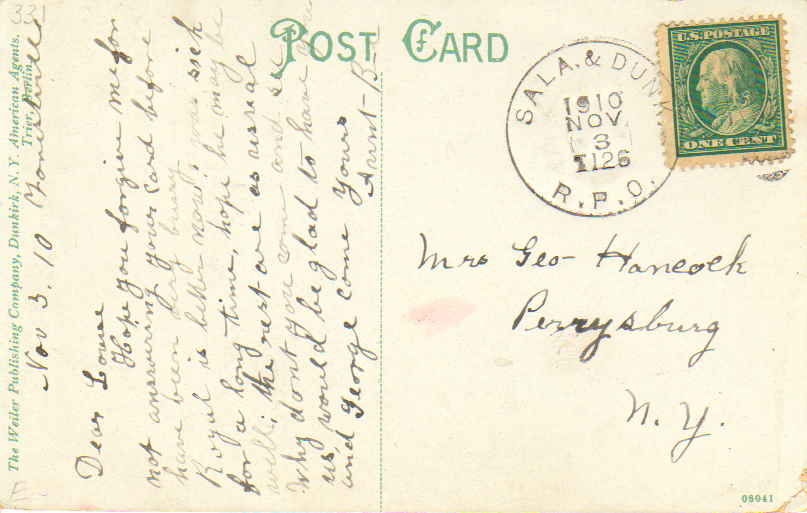 POST CARD
U.S. POSTAGE
ONE CENT
SALA. & DUNK
1910
NOV
3
T126
R.P.O.
Mrs Geo- Hancock
Perrysburg
N. Y.
08041
33
The Weiler Publishing Company, Dunkirk, N. Y. American Agents.
Trier, Berlin.
Nov 3. 10
Dear Louise
Hope you forgive me for
not answering your card before
have been very bussy
Royal is better now, was sick
for a long time, hope he may be
well; the rest are as usual
Why dont you come and see
us, would be glad to have you
and George come Yours
Aunt-B-